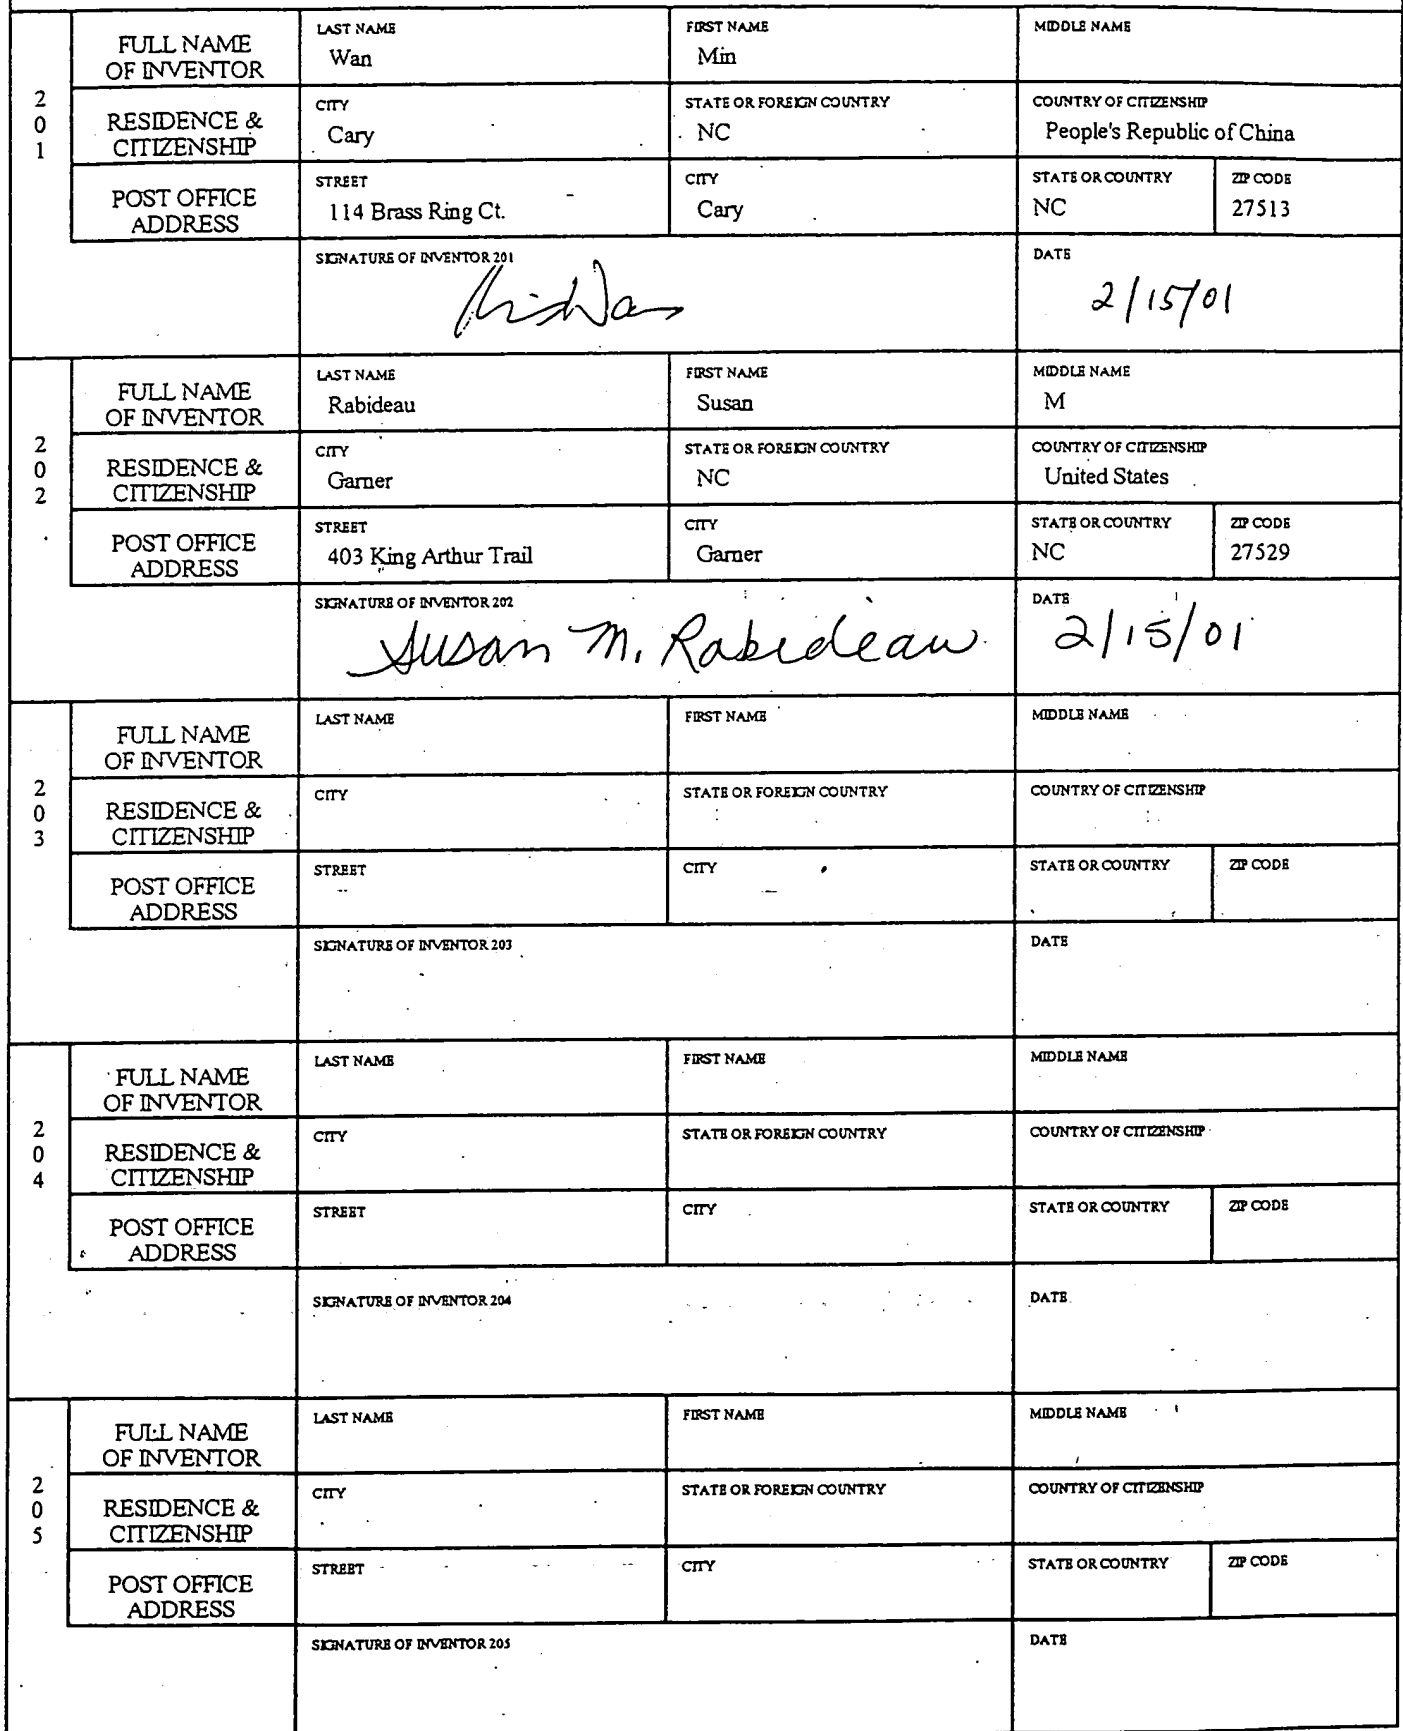 201
FULL NAME OF INVENTOR
LAST NAME
Wan
FIRST NAME
Min
MIDDLE NAME
RESIDENCE & CITIZENSHIP
CITY
Cary
STATE OR FOREIGN COUNTRY
NC
COUNTRY OF CITIZENSHIP
People's Republic of China
POST OFFICE ADDRESS
STREET
114 Brass Ring Ct.
CITY
Cary
STATE OR COUNTRY
NC
ZIP CODE
27513
SIGNATURE OF INVENTOR 201
DATE
2/15/01
202
FULL NAME OF INVENTOR
LAST NAME
Rabideau
FIRST NAME
Susan
MIDDLE NAME
M
RESIDENCE & CITIZENSHIP
CITY
Garner
STATE OR FOREIGN COUNTRY
NC
COUNTRY OF CITIZENSHIP
United States
POST OFFICE ADDRESS
STREET
403 King Arthur Trail
CITY
Garner
STATE OR COUNTRY
NC
ZIP CODE
27529
SIGNATURE OF INVENTOR 202
Susan M. Rabideau
DATE
2/15/01
203
FULL NAME OF INVENTOR
LAST NAME
FIRST NAME
MIDDLE NAME
RESIDENCE & CITIZENSHIP
CITY
STATE OR FOREIGN COUNTRY
COUNTRY OF CITIZENSHIP
POST OFFICE ADDRESS
STREET
CITY
STATE OR COUNTRY
ZIP CODE
SIGNATURE OF INVENTOR 203
DATE
204
FULL NAME OF INVENTOR
LAST NAME
FIRST NAME
MIDDLE NAME
RESIDENCE & CITIZENSHIP
CITY
STATE OR FOREIGN COUNTRY
COUNTRY OF CITIZENSHIP
POST OFFICE ADDRESS
STREET
CITY
STATE OR COUNTRY
ZIP CODE
SIGNATURE OF INVENTOR 204
DATE
205
FULL NAME OF INVENTOR
LAST NAME
FIRST NAME
MIDDLE NAME
RESIDENCE & CITIZENSHIP
CITY
STATE OR FOREIGN COUNTRY
COUNTRY OF CITIZENSHIP
POST OFFICE ADDRESS
STREET
CITY
STATE OR COUNTRY
ZIP CODE
SIGNATURE OF INVENTOR 205
DATE